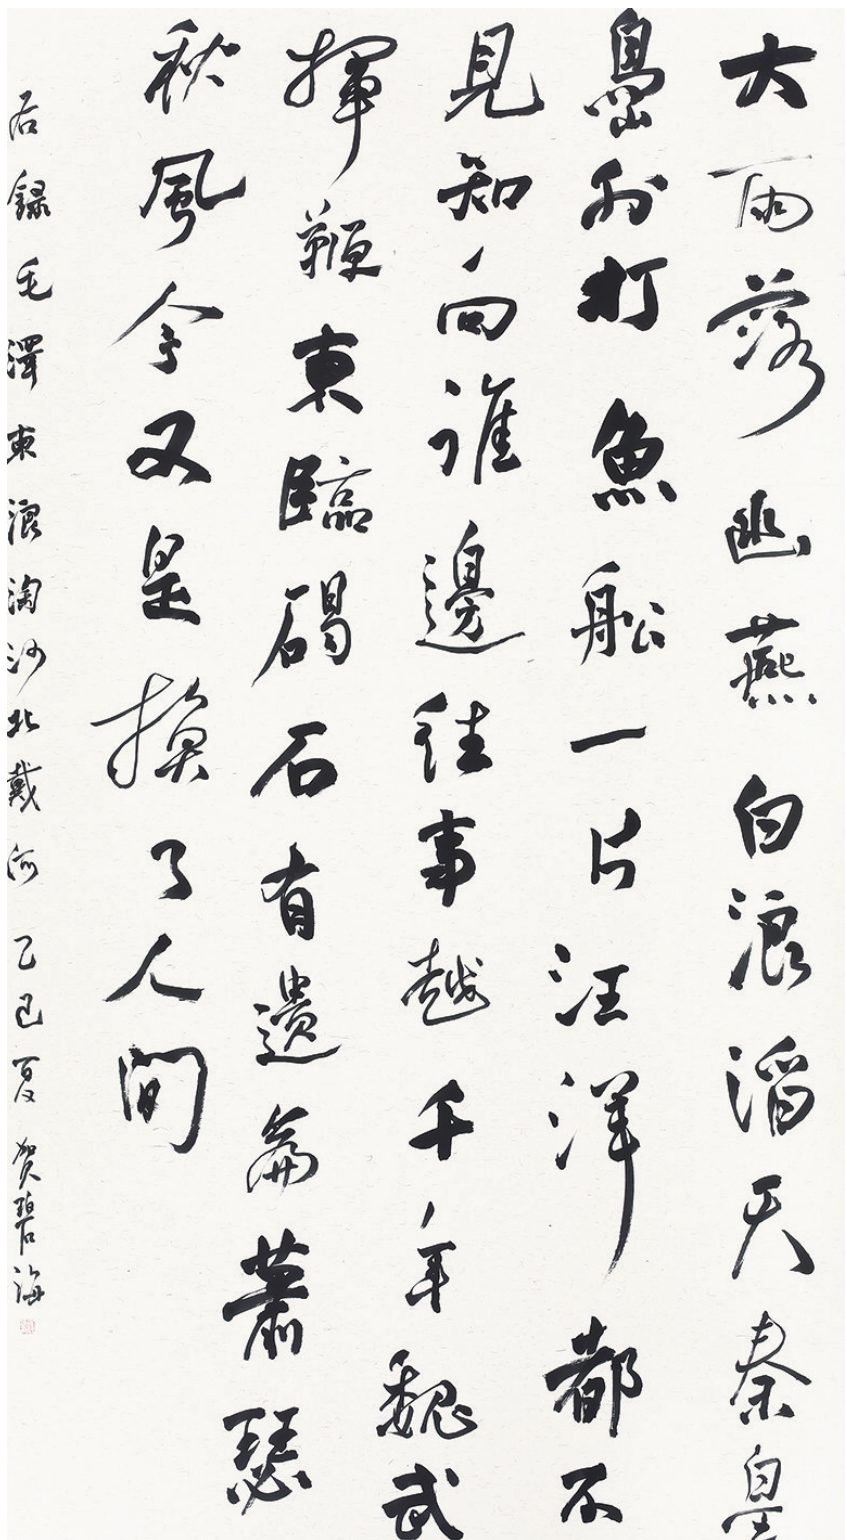 大雨落幽燕白浪滔天秦皇
島外打魚船一片汪洋都不
見知向誰邊往事越千年魏武
揮鞭東臨碣石有遺篇蕭瑟
秋風今又是換了人间
右錄毛澤東浪淘沙北戴河乙巳夏贺碧海